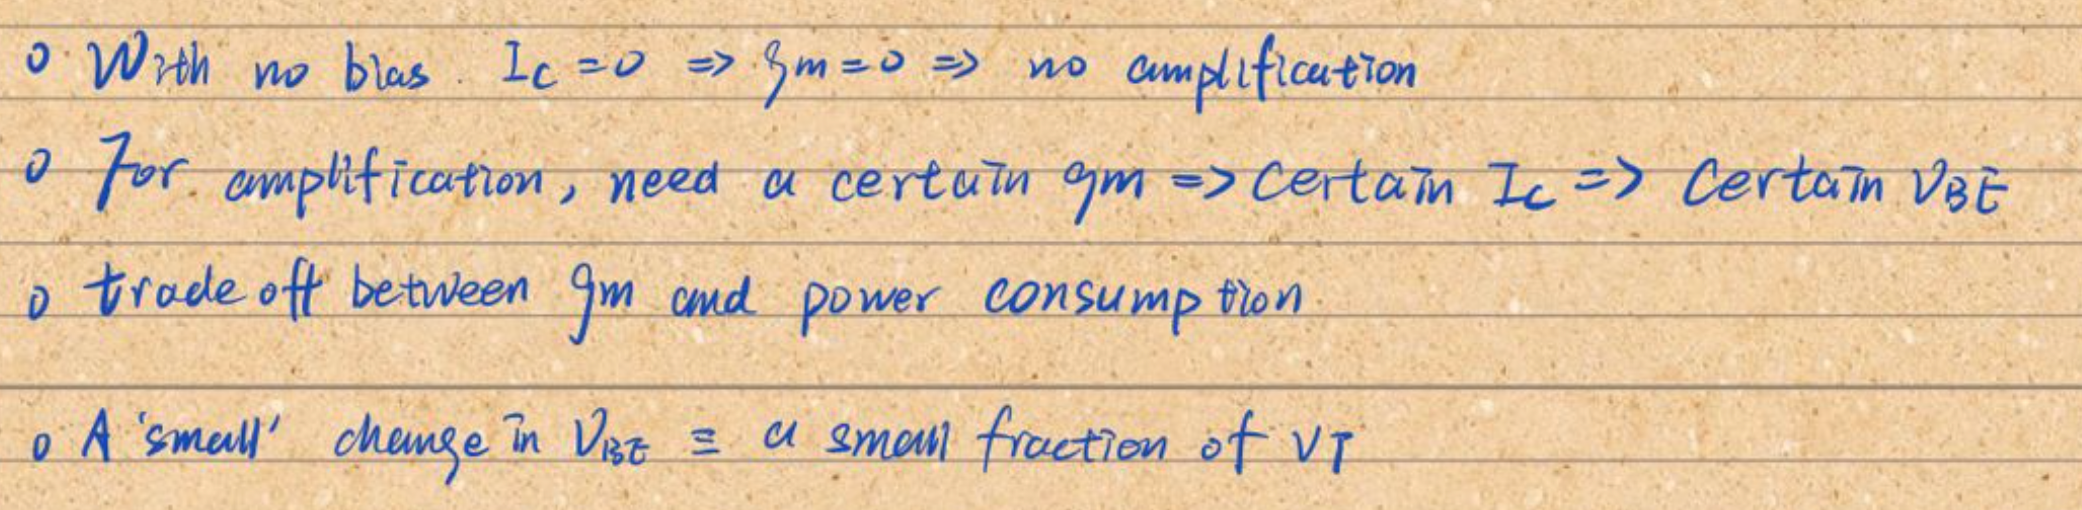 o With no bias. Ic=0 => gm=0 => no amplification
o For amplification, need a certain gm => Certain Ic => Certain VBE
o trade off between gm and power consumption
o A 'small' change in VBE ≡ a small fraction of VT